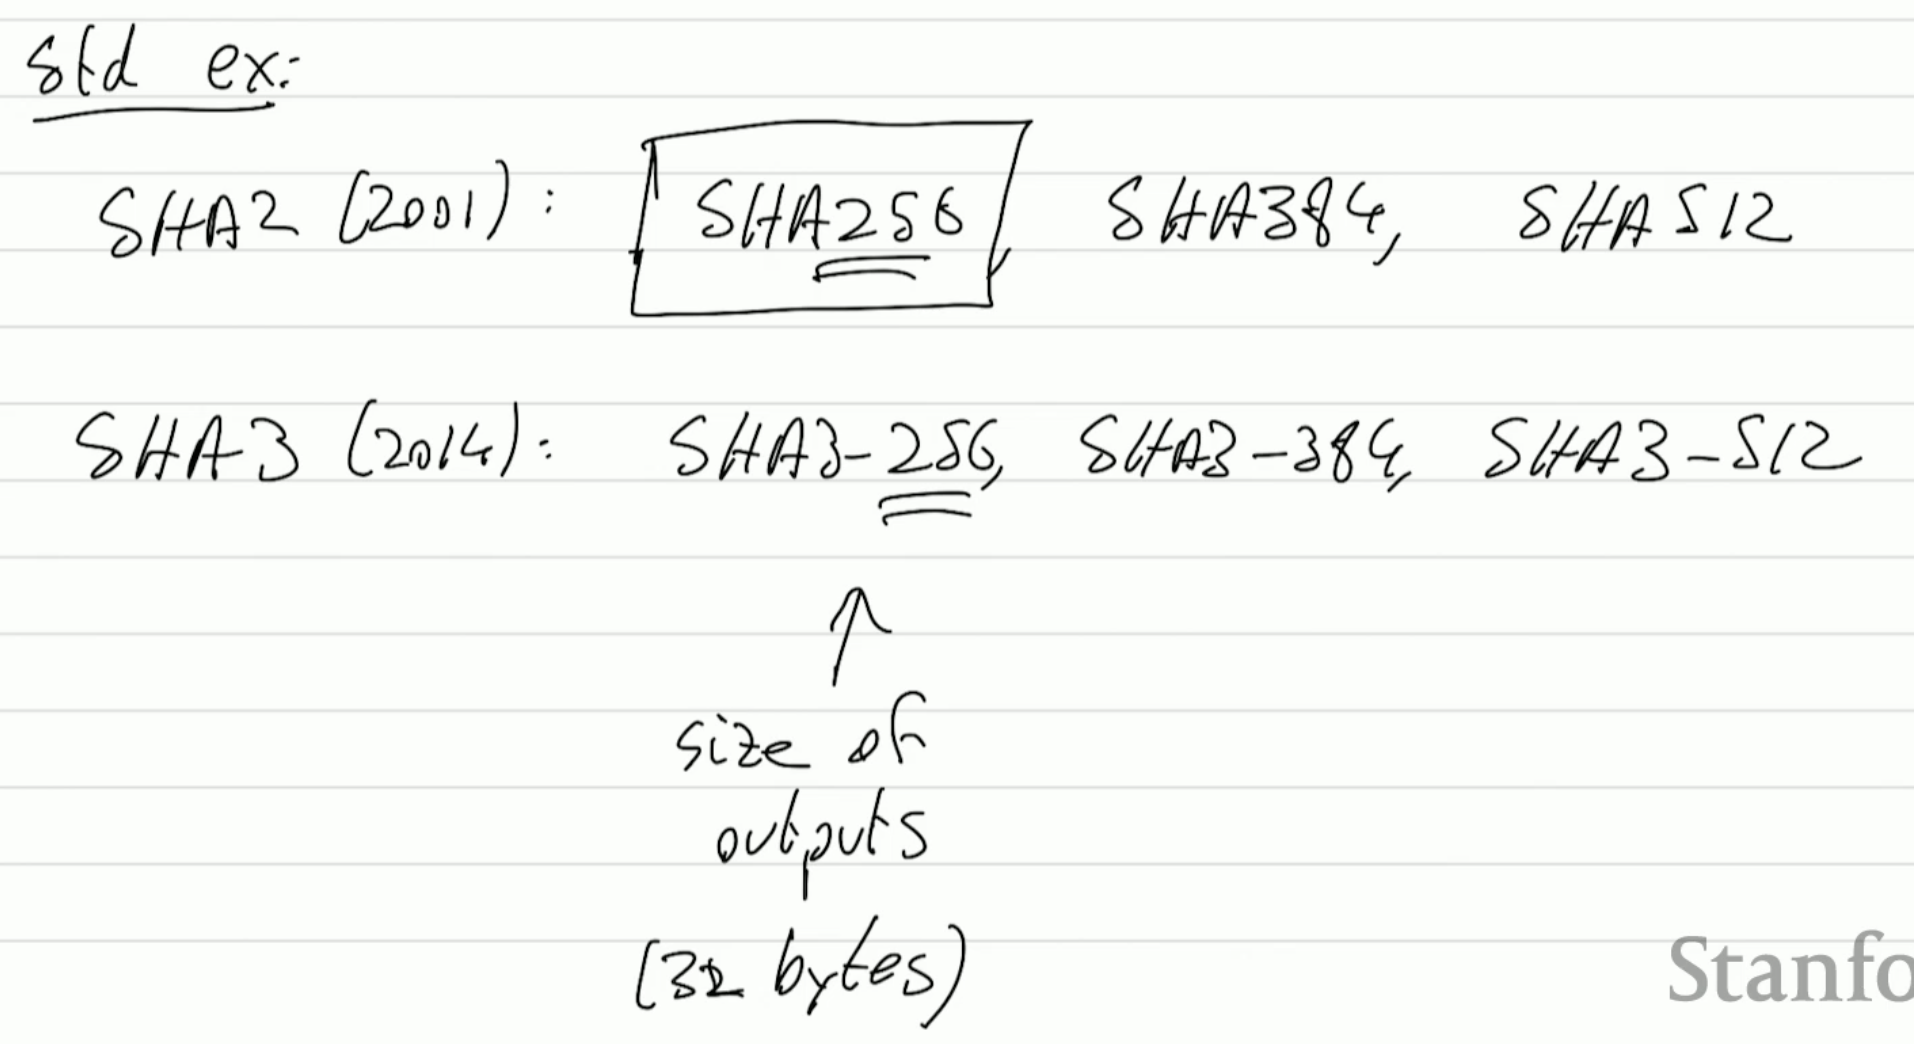 std ex:
SHA2 (2001): SHA256, SHA384, SHA512
SHA3 (2014): SHA3-256, SHA3-384, SHA3-512
↑
size of
outputs
(32 bytes)
Stanfo